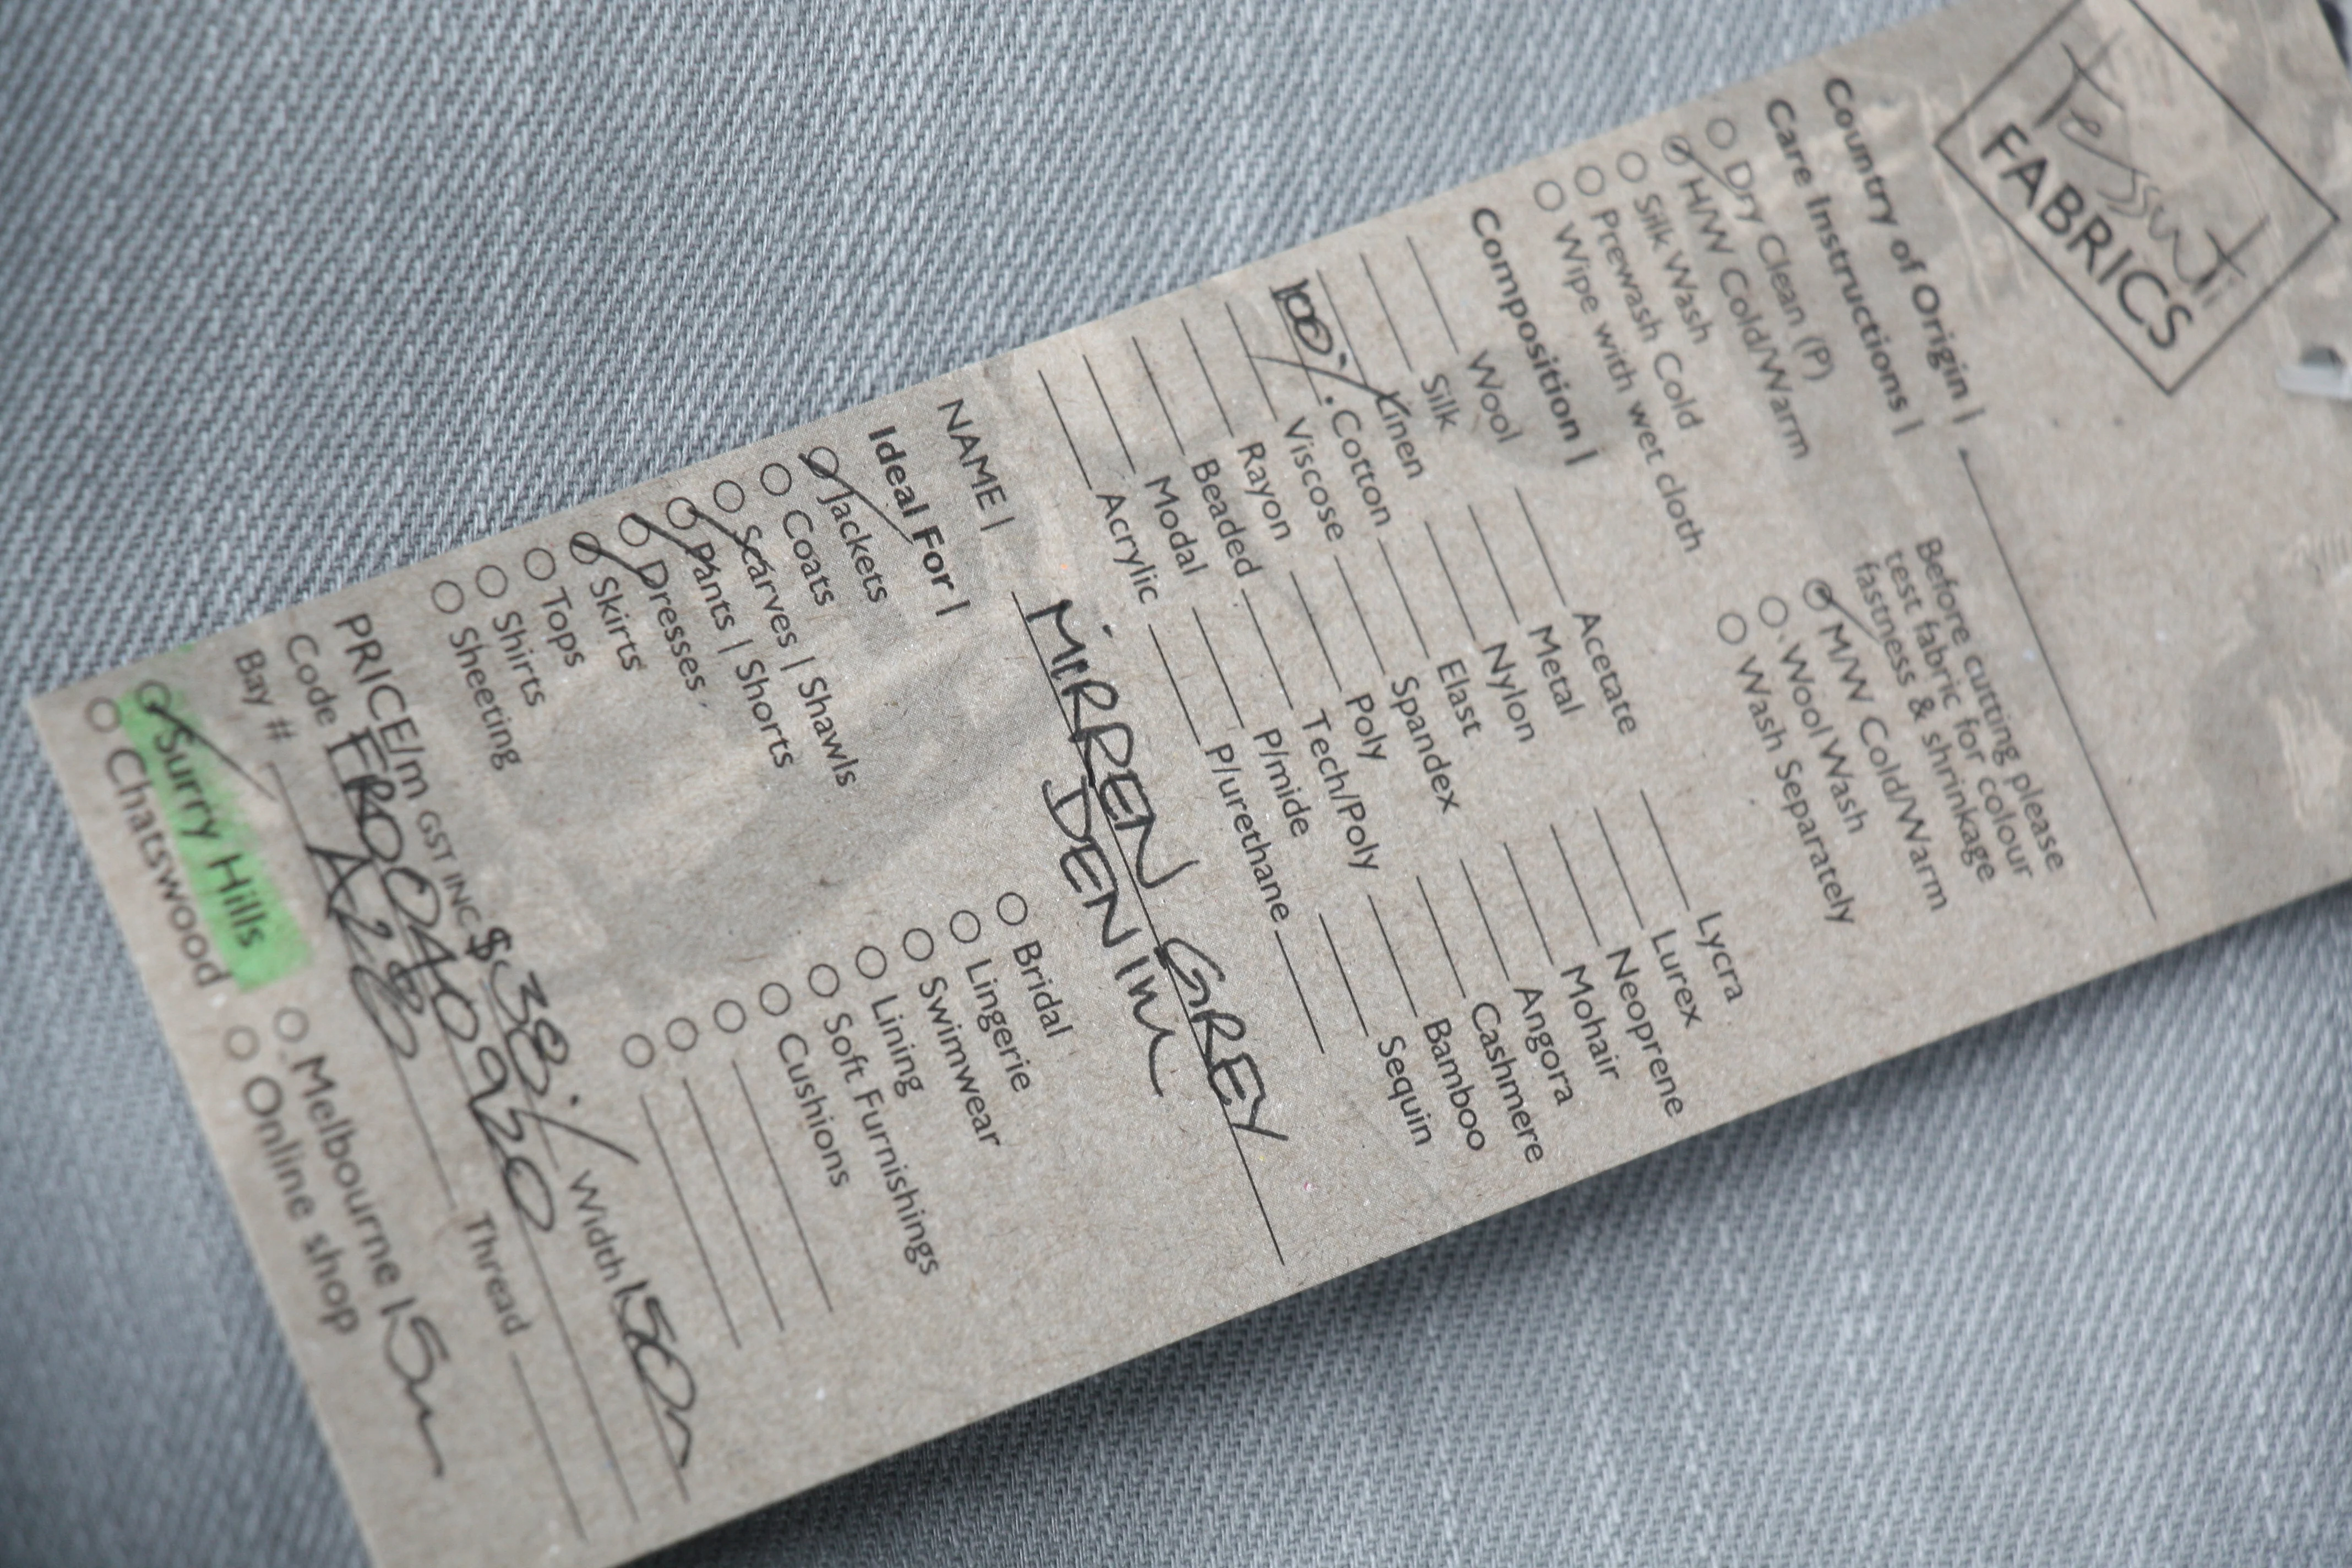 Tessuti
FABRICS
Country of Origin |
Care Instructions |
Before cutting please
test fabric for colour
fastness & shrinkage
Dry Clean (P)
H/W Cold/Warm
Silk Wash
Prewash Cold
Wipe with wet cloth
M/W Cold/Warm
Wool Wash
Wash Separately
Composition |
Wool Acetate Lycra
Silk Metal Lurex
Linen Nylon Neoprene
100% Cotton Elast Mohair
Viscose Spandex Angora
Rayon Poly Cashmere
Beaded Tech/Poly Bamboo
Modal P/mide Sequin
Acrylic P/urethane
NAME | MIRREN GREY
DENIM
Ideal For |
Jackets Bridal
Coats Lingerie
Scarves | Shawls Swimwear
Pants | Shorts Lining
Dresses Soft Furnishings
Skirts Cushions
Tops
Shirts
Sheeting
PRICE/m GST INC $38 Width 150
Code
Bay # A28 Thread
Surry Hills Melbourne 15m
Chatswood Online shop